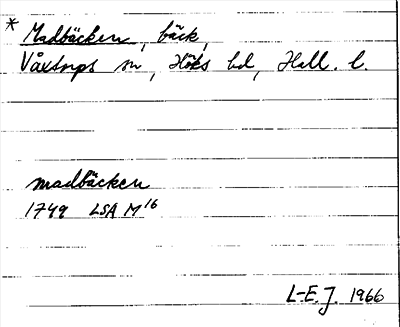 * Madbäcken, bäck,
Våxtorps sn, Höks hd, Hall. l.
madbäcken
1749 LSA M16
L-E. J. 1966